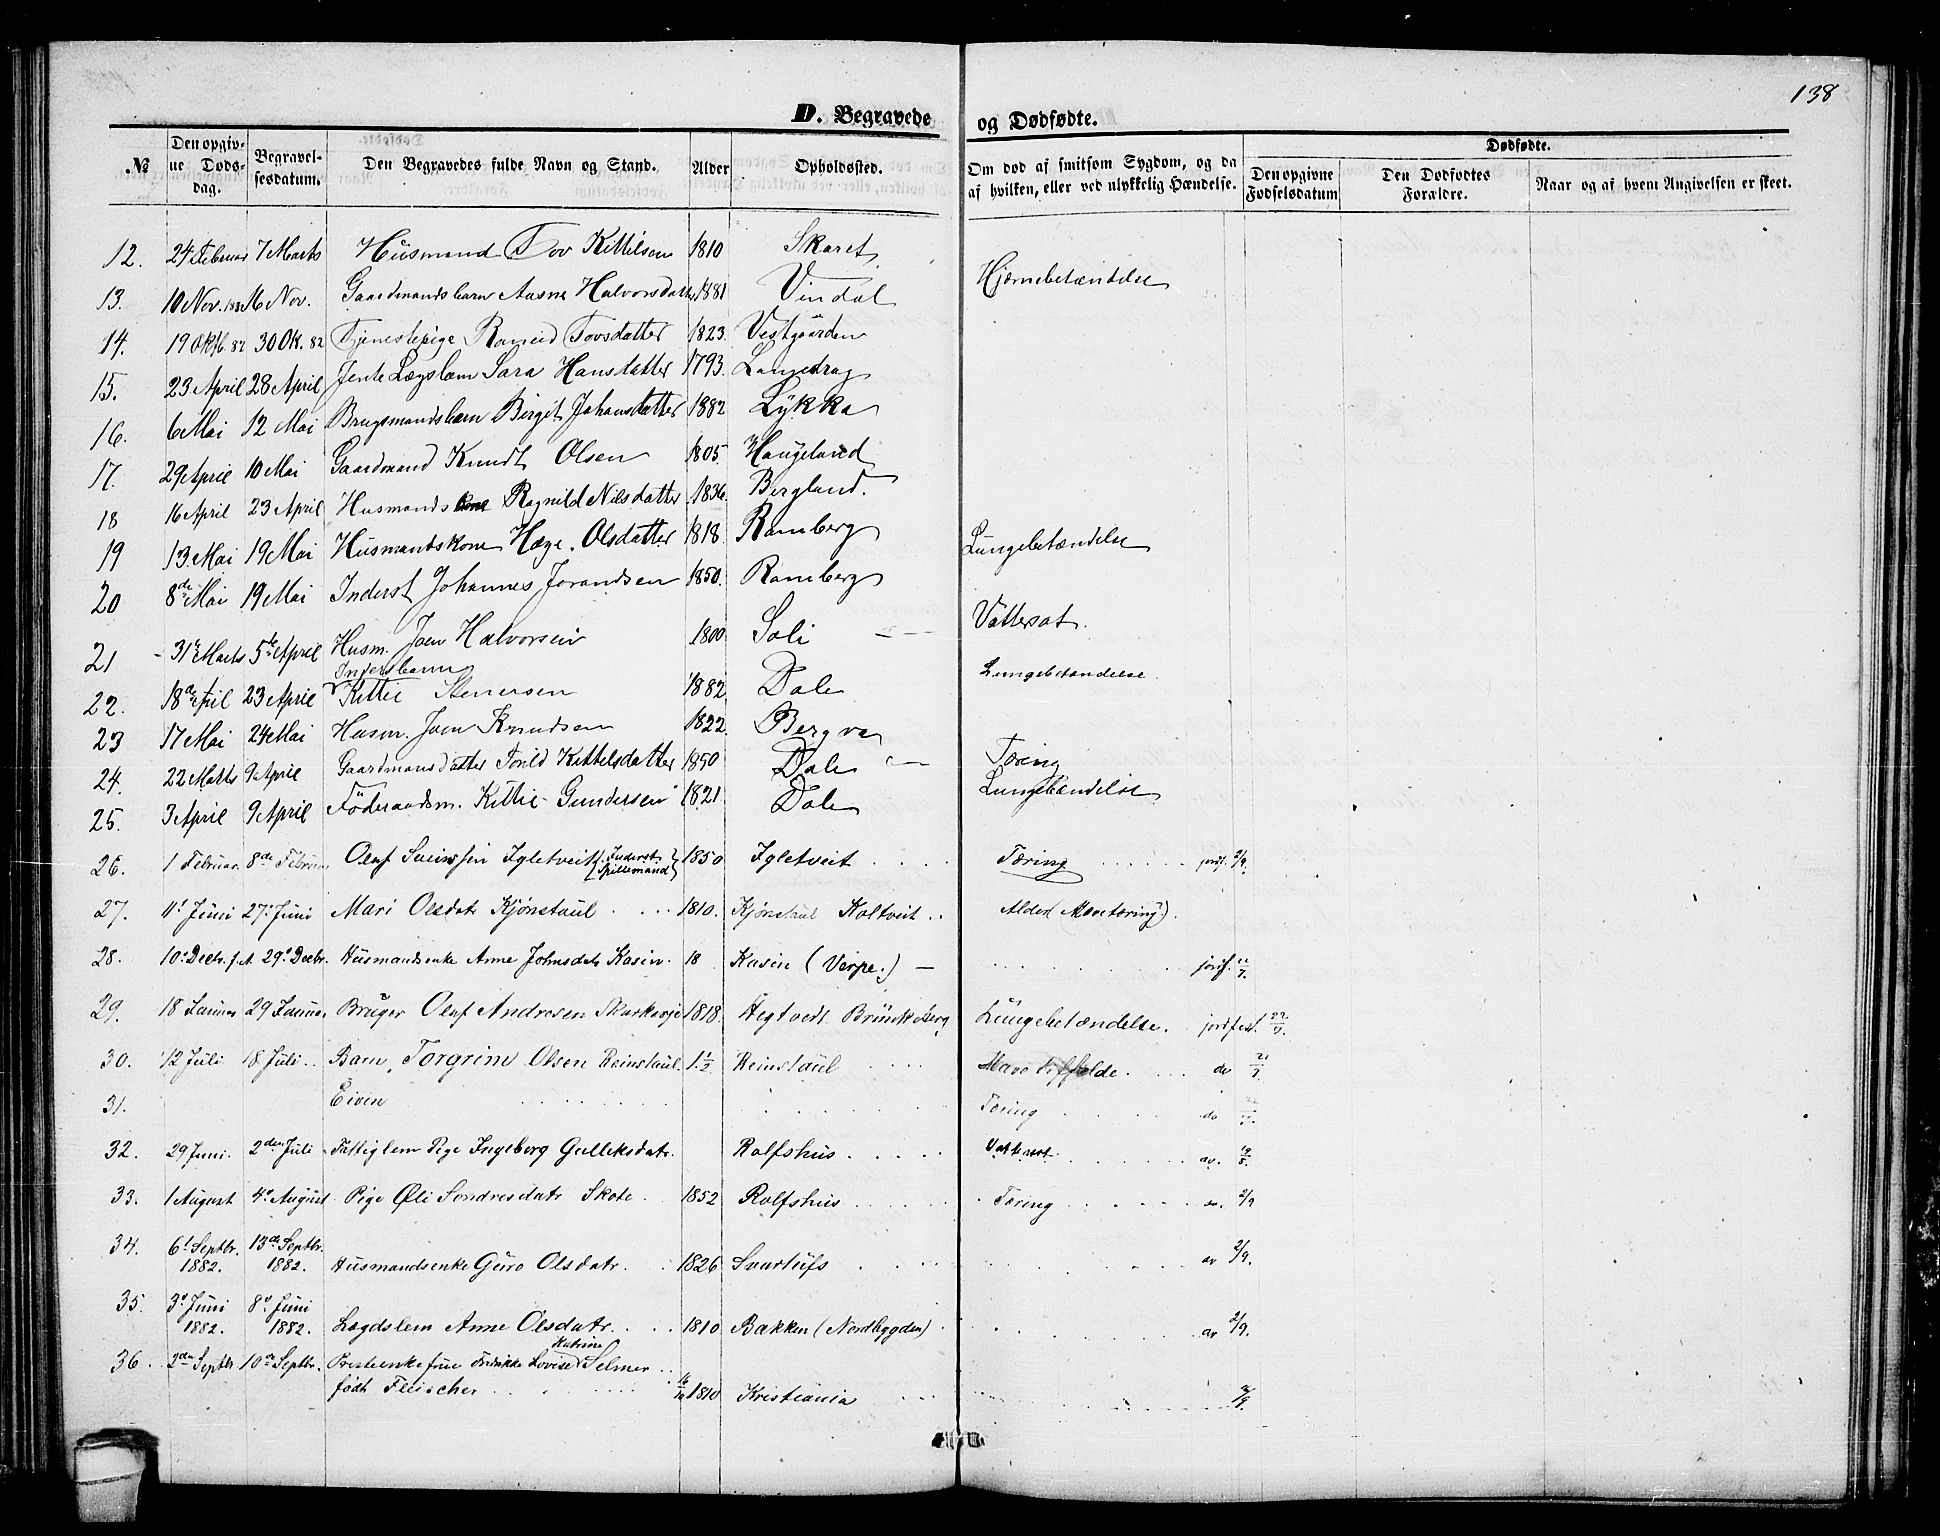 138
D. Begravede og Dødfødte.
№ Den opgivne Døds-dag. Begravelsesdatum. Den Begravedes fulde Navn og Stand. Alder Opholdssted. Om død af smitsom Sygdom, og da af hvilken, eller ved ulykkelig Hændelse. Dødfødte. Den opgivne Fødselsdatum Den Dødfødtes Forældre. Naar og af hvem Angivelsen er skeet.
12. 24 Februar 7 Marts Husmand Tov Kittilsen 1810 Skaret
13. 10 Nov. 16 Nov. Gaardmandsbarn Aasne Halvorsdatter 1881 Vindal Hjernebetændelse
14. 19 Oktb. 82 30 Ok. 82 Tjenestepige Torsdatter 1823 Vestgården
15. 23 April 28 April Jente Lægslem Sara Hansdatter 1793. Langedrag
16. 6 Mai 12 Mai Brugsmandsbarn Birgit Johansdatter 1882 Lykka
17. 29 April 10 Mai Gaardmand Knudt Olsen 1805 Haugeland
18 16 April 23 April Husmandskone Ragnild Nilsdatter 1836. Bergland.
19 13 Mai 19 Mai Husmandskone Hæge Olsdatter 1818 Ramberg Lungebetændelse
20 8de Mai 19 Mai Inderst Johannes Jorandsen 1850. Ramberg
21 31te Marts 5te April Husm. Joen Halvorsen 1800 Soli — Vattersot.
22. 18de April 23 April Inderstbarn Kittil Stenersen 1882 Dale Lungebetændelse.
23 17 Mai 24 Mai Husm. Joen Knudsen 1822. Bergva
24. 22 Marts 9 April Gaardmansdatter Torild Kittelsdatter 1850 Dale — Tæring
25. 3 April 9 April Föderaadsm. Kittil Gundersen 1821 Dale Lungebændelse
26. 1 Februar 8de Februar Oluf Sveinssen Igletveit (Inderst Spillemand) 1850 Igletveit Tæring jordf. 2/9.
27. 4' Juni 27' Juni Mari Olsdatr Kjönstaul 1810. Kjönstaul Koltveit Alder (Mavetæring).
28. 10' Decbr. f.A. 29' Decbr. Husmandsenke Anne Johnsdatr Kasin. 18 Kasin (Verpe.) — jordf.
29. 18 Januar 29 Januar Brüger Oluf Andresen 1818. Hegtvedt Brünkeberg Lungebetændelse. jordfest. 22/7.
30. 12 Juli 18 Juli Barn, Torgrim Olsen Reinstaul. 1½ Reinstaul do 21/7.
31. Eiven Tæring do
32. 29 Juni. 2den Juli Fattiglem Pige Ingeberg Gulleksdatr. Rolfshus Vattersot
33. 1 August 4' August Pige Øli Sondresdatr Skote 1852 Rolfshus Tæring 2/9
34. 6' Septbr. 1882. 13de Septbr. 1882. Husmandsenke Guro Olsdatr. 1826 Svartufs 2/9.
35. 3' Juni 1882. 8' Juni 1882. Lægdslem Anne Olsdatr. 1810 Bakken (Nordbygden) 2/9.
36. 2den Septbr 10de Septbr. Presteenkefrue Fredrikke Lovise Katrine Selmer
født Fleischer 1810 Kristiania 2/9.